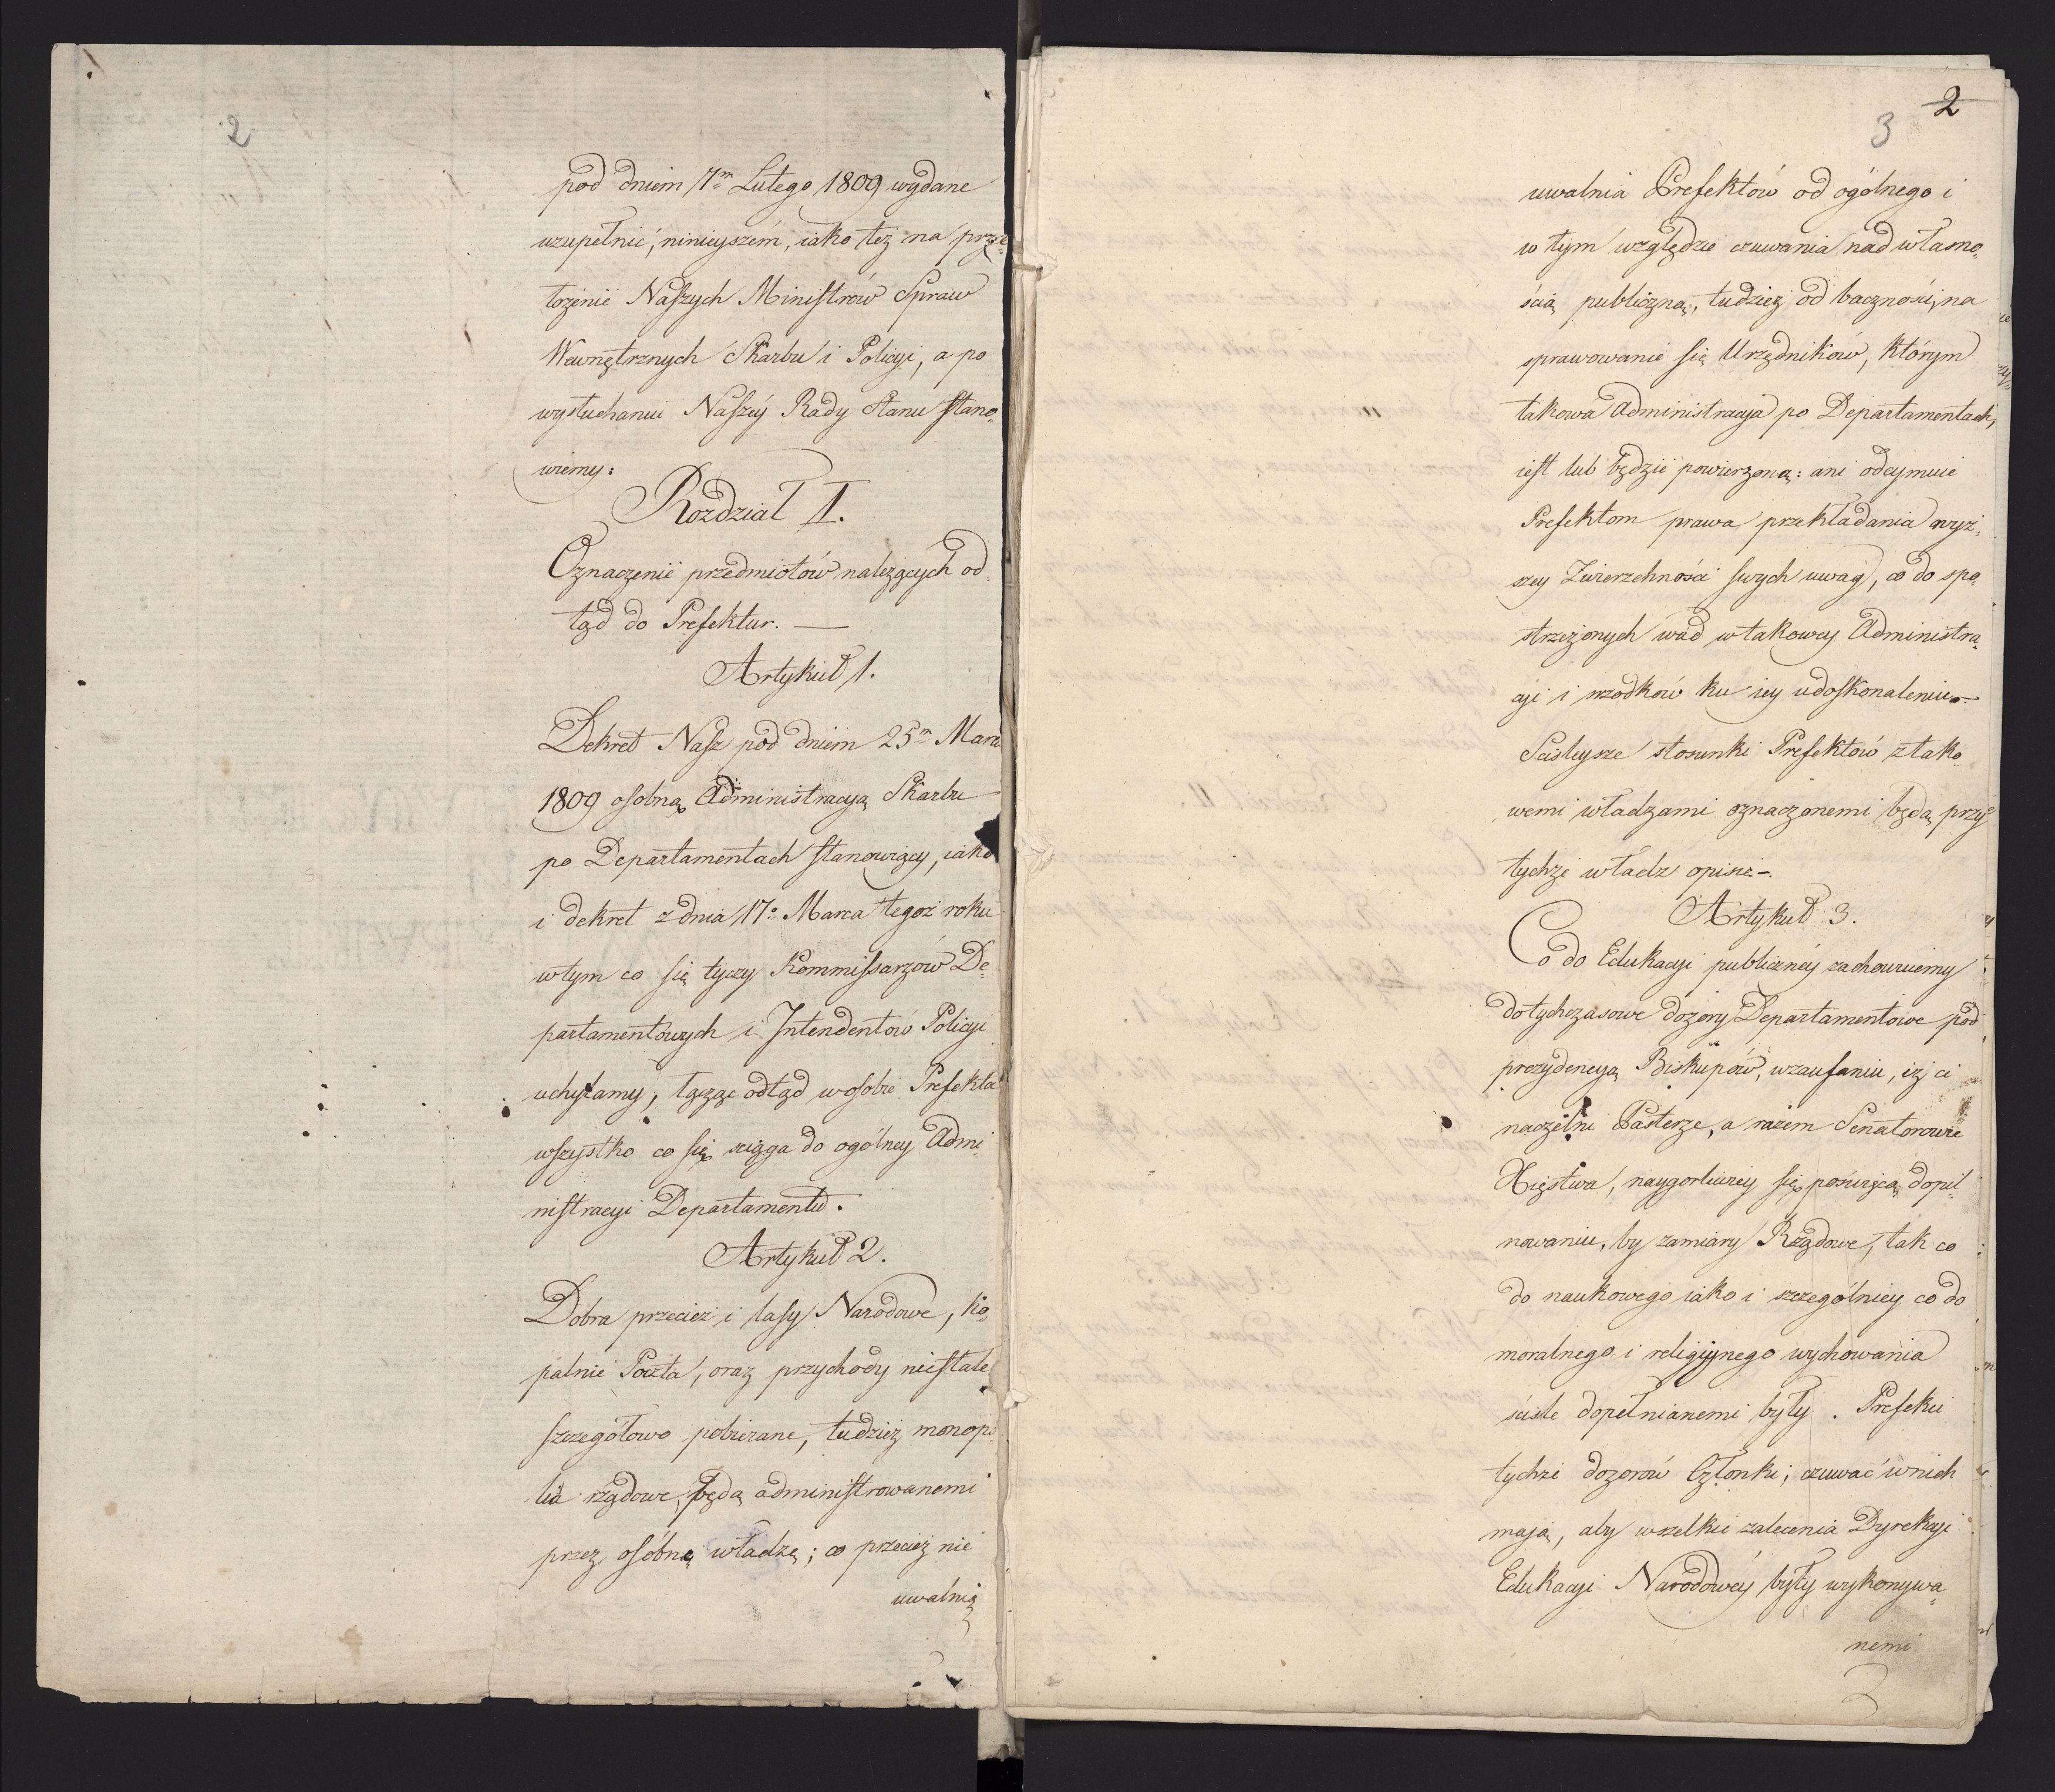 2
pod dniem 7m Lutego 1809 wydane
uzupełnić, ninieyszém, iako też na prze=
łożenie Naszych Ministrów Spraw
Wewnętrznych Skarbu i Policyi, a po
wysłuchaniu Naszey Rady Stanu stano=
wiemy:
Rozdział I.
Oznaczenie przedmiotów należących od=
tąd do Prefektur. —
Artykuł 1.
Dekret Nasz pod dniem 25m Marca
1809 osobną Administracyą Skarbu
po Departamentach stanowiący, iako
i dekret z dnia 17o Marca tegoż roku
w tym co się tyczy Kommissarzów De=
partamentowych i Intendentów Policyi
uchylamy, łącząc odtąd w osobie Prefekta
wszystko co się sciąga do ogólney Admi=
nistracyi Departamentu.
Artykuł 2.
Dobra przecież i lasy Narodowe, ko=
palnie Poczta, oraz przychody niestałe
szczegółowo pobierane, tudzież monopo=
lia rządowe, będą administrowanemi
przez osóbną władzę; co przecież nie
uwalnia
2
3
uwalnia Prefektów od ogólnego i
w tym względzie czuwania nad własno=
ścią publiczną, tudzież od baczności, na
sprawowanie się Urzędników, którym
takowa Administracya po Departamentach,
iest lub będzie powierzoną: ani odeymuie
Prefektom prawa przekładania wyż=
szey Zwierzchności swych uwag, co do spo=
strzeżonych wad w takowey Administra=
cyi i srzodków ku iey udoskonaleniu.—
Scisleysze stosunki Prefektów z tako=
wemi władzami oznaczonemi będą przy
tychże władz opisie—.
Artykuł 3.
Co do Edukacyi publiczney zachowuiemy
dotychczasowe dozory Departamentowe pod
prezydencyą Biskupów, w zaufaniu, iż ci
naczelni Pasterze, a razem Senatorowie
Xięstwa, naygorliwiey się poświęcą dopil=
nowaniu, by zamiary Rządowe, tak co
do naukowego iako i szczególniey co do
moralnego i religiynego wychowania
sciśle dopełnianemi były. Prefekci
tychże dozorów Członki, czuwać w nich
maią, aby wszelkie zalecenia Dyrekcyi
Edukacyi Narodowéy były wykonywa=
nemi